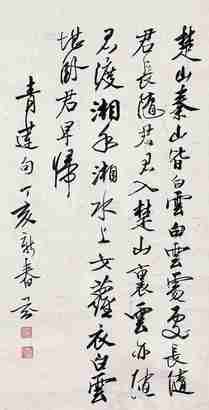 楚山秦山皆白雲白雲處處長隨
君長隨君君入楚山裏雲亦隨
君渡湘水湘水上女蘿衣白雲
堪卧君早歸
青蓮句丁亥新春